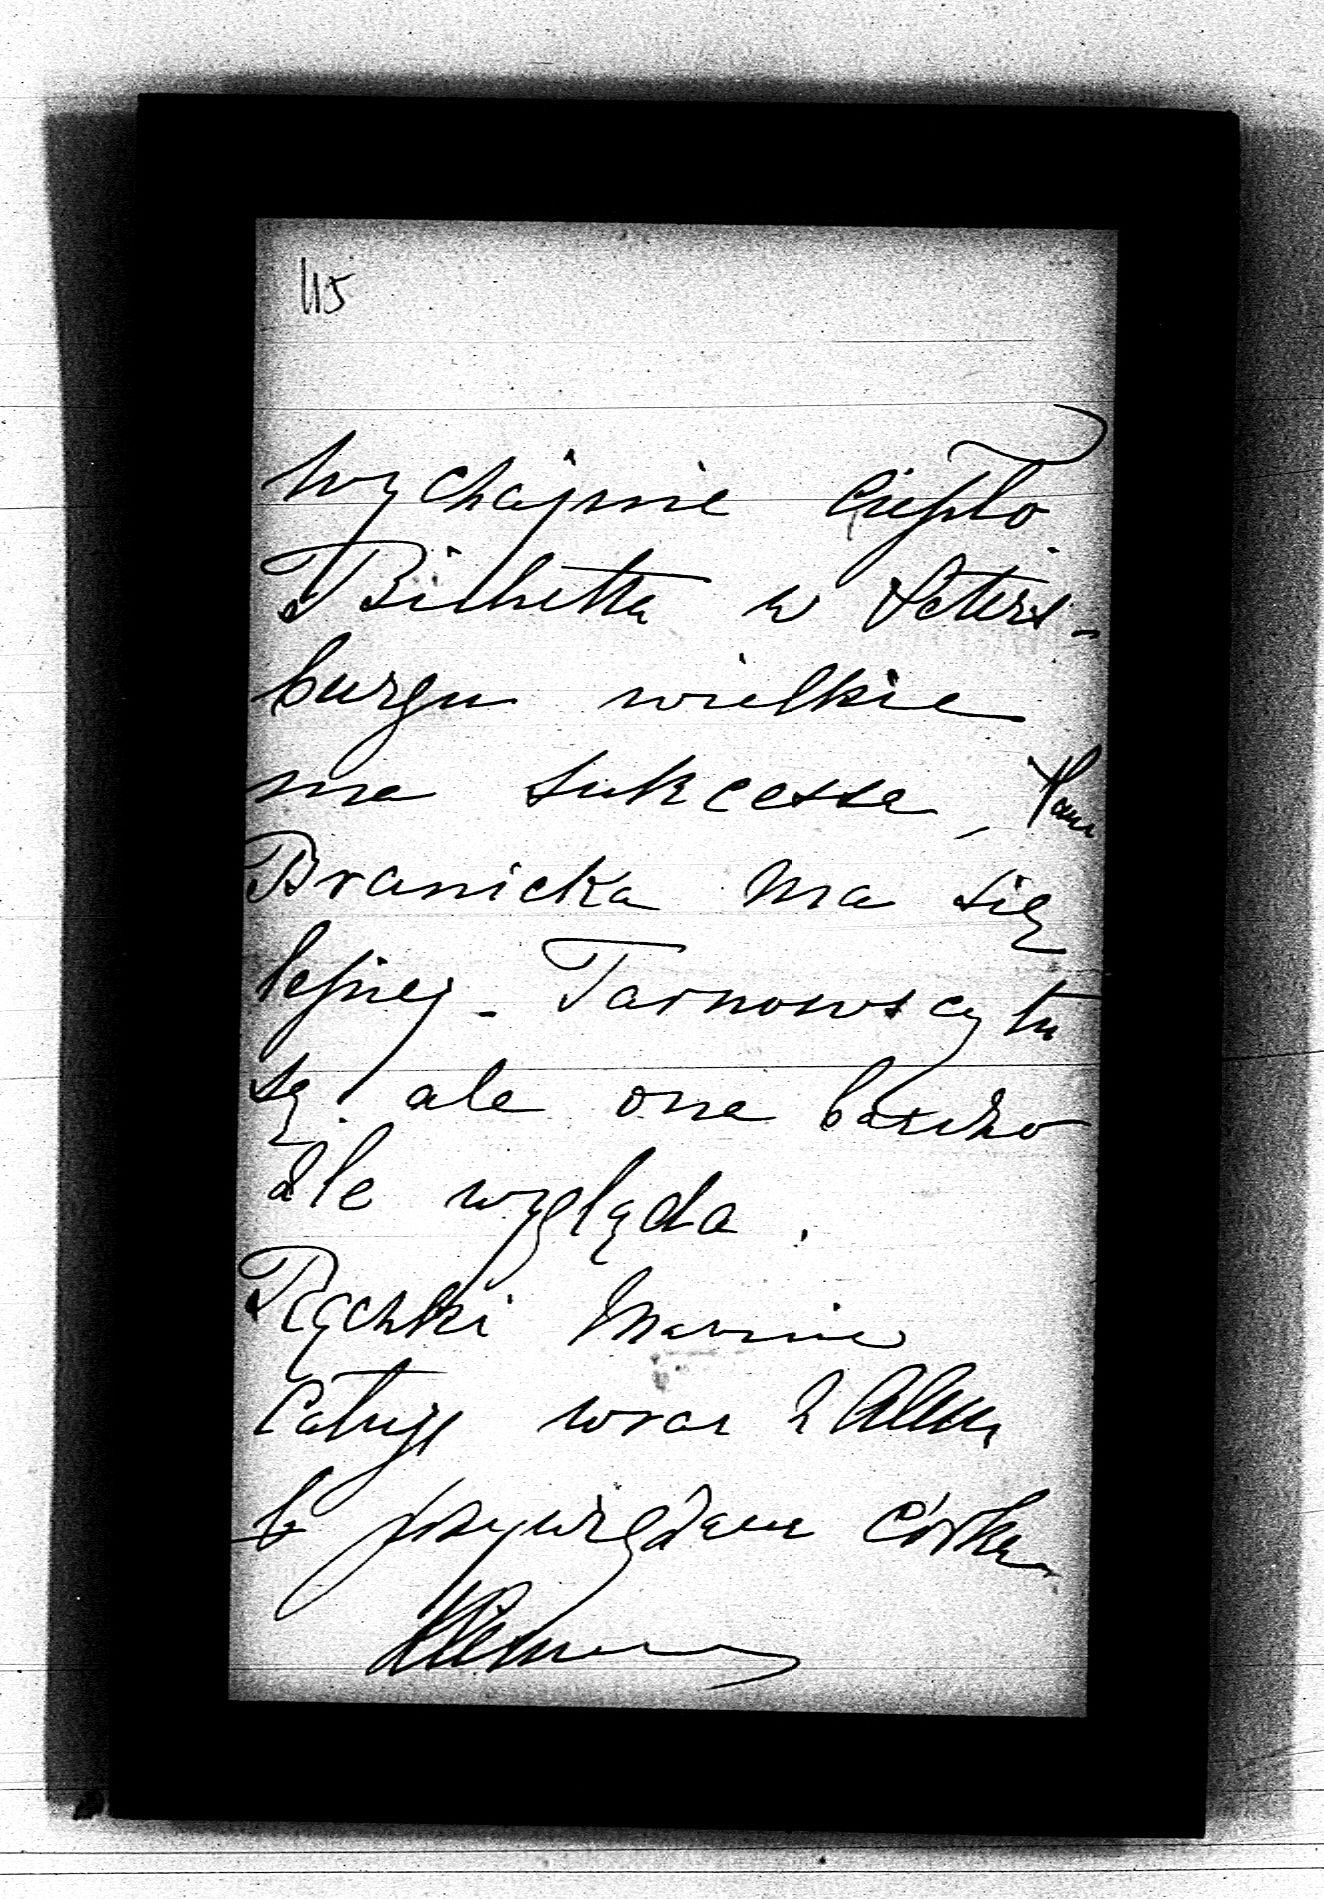 115
wychajnie ciepło
Bichetta w Peters-
burgu wielkie
ma sukcessa, Pani
Branicka ma się
lepiej - Tarnowscy tu
są, ale one bardzo
źle wygląda.
Rączki Mamie
całuję wraz z
przywiązana córka